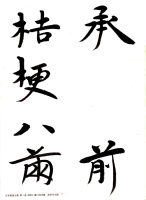 承前
桔梗八兩